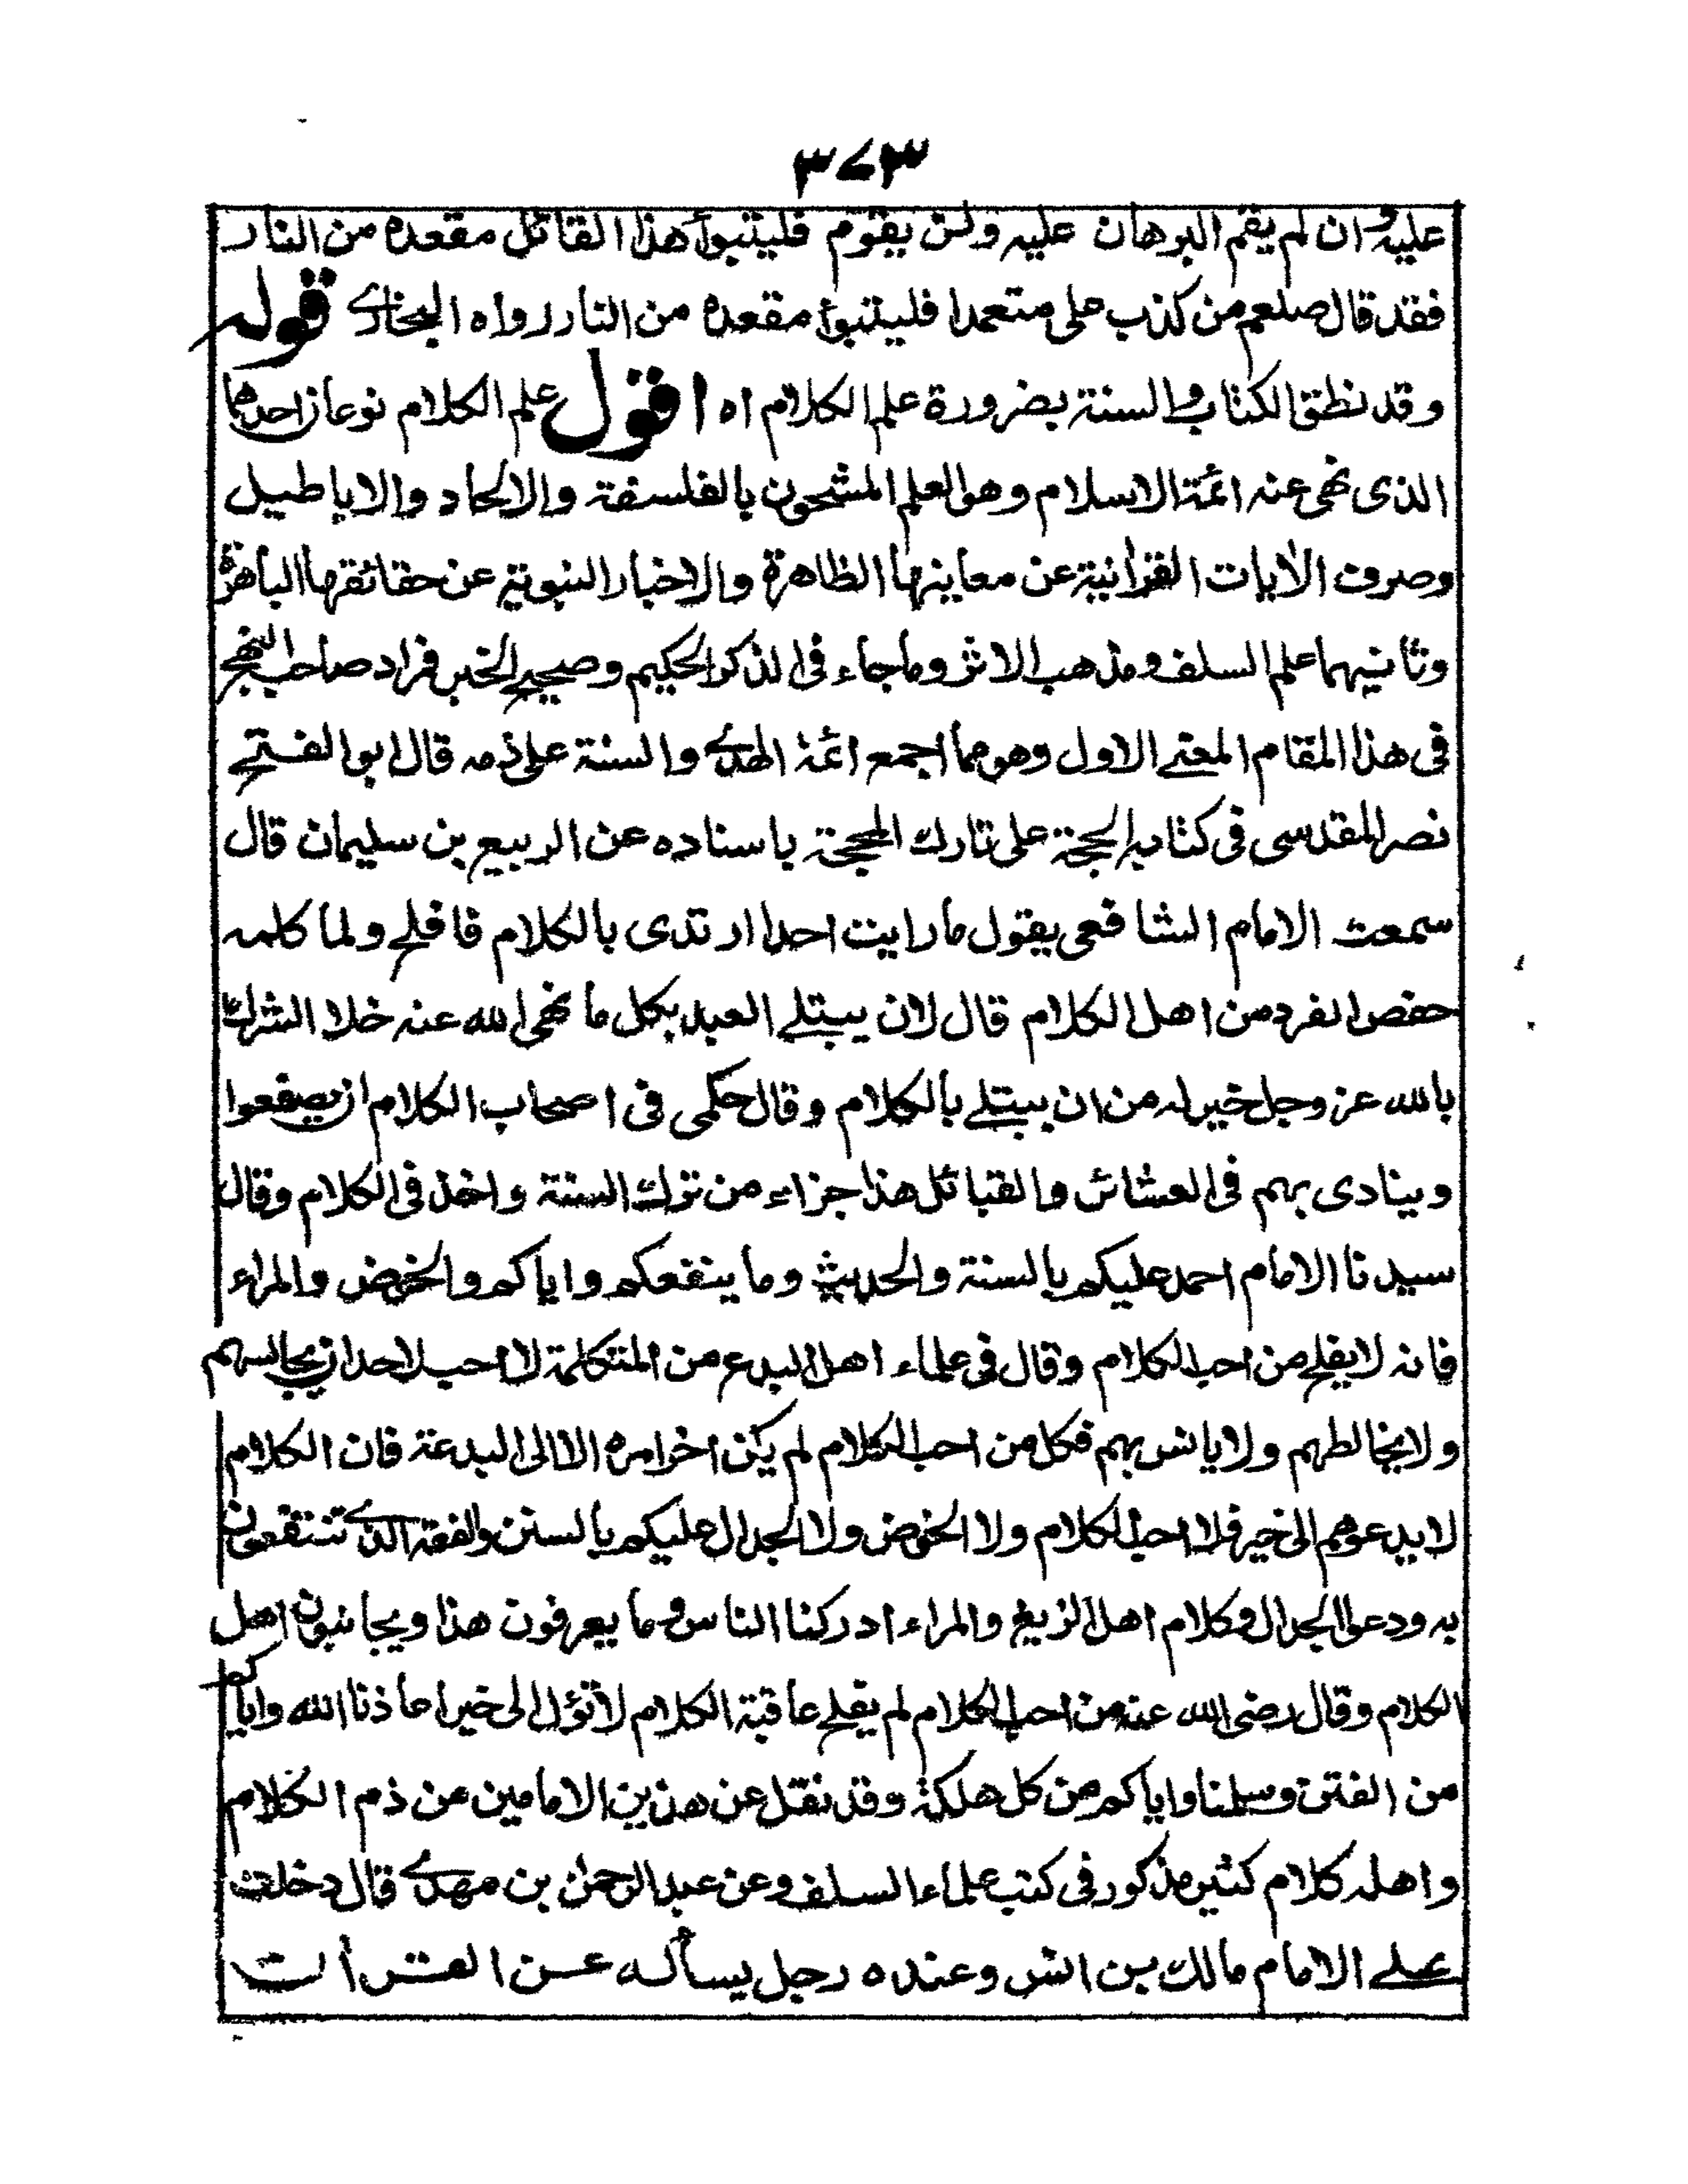 ٣٧٣
عليه وان لم يقم البرهان عليه ولن يقوم فليتبوأ هذا القائل مقعده من النار
فقد قال صلعم من كذب على متعمدا فليتبوأ مقعده من النار رواه البخارے قوله
وقد نطق الكتاب والسنة بضرورة علم الكلام اه اقول علم الكلام نوعان احدهما
الذى نهى عنه ائمة الاسلام وهو العلم المشحون بالفلسفة والالحاد والاباطيل
وصرف الأيات القرأنية عن معاينها الظاهرة والاخبار النبوية عن حقائقها الباهرة
وثانيهما علم السلف ومذهب الاثر وما جاء فى الذكر الحكيم وصحيح الخبر فراد صاحب النهج
فى هذا المقام المعنے الاول وهو مما اجمع ائمة الهدے والسنة على ذمه قال ابو الفتح
نصر المقدسى فى كتابه الحجة على تارك المحجة باسناده عن الربيع بن سليمان قال
سمعت الامام الشافعى يقول ما رايت احدا ارتدى بالكلام فافلح ولما كلمه
حفص الفرد من اهل الكلام قال لان يبتلے العبد بكل ما نهى الله عنه خلا الشرك
بالله عز وجل خير له من ان يبتلے بالكلام وقال حكمى فى اصحاب الكلام ان يصفعوا
وينادى بهم فى العشائر والقبائل هذا جزاء من ترك السنة واخذ فى الكلام وقال
سيدنا الامام احمد عليكم بالسنة والحديث وما ينفعكم واياكم والخوض والمراء
فانه لا يفلح من احب الكلام وقال فى علماء اهل البدع من المتكلمة لا احب لاحد ان يجالسهم
ولا يخالطهم ولا يانس بهم فكل من احب الكلام لم يكن اخر امره الا الى البدعة فان الكلام
لا يدعوهم الى خير فلا احب الكلام ولا الخوض ولا الجدال عليكم بالسنن والفقه الذے تنتفعون
به ودعوا الجدال وكلام اهل الزيغ والمراء ادركنا الناس وما يعرفون هذا ويجانبون اهل
الكلام وقال رضى الله عنه من احب الكلام لم يفلح عاقبة الكلام لا تؤل الى خير اعاذنا الله واياكم
من الفتن وسلمنا واياكم من كل هلكة وقد نقل عن هذين الامامين من ذم الكلام
واهله كلام كثير مذكور فى كتب علماء السلف وعن عبد الرحمٰن بن مهدے قال دخلت
علے الامام مالك بن انس وعنده رجل يسأله عن القرأن